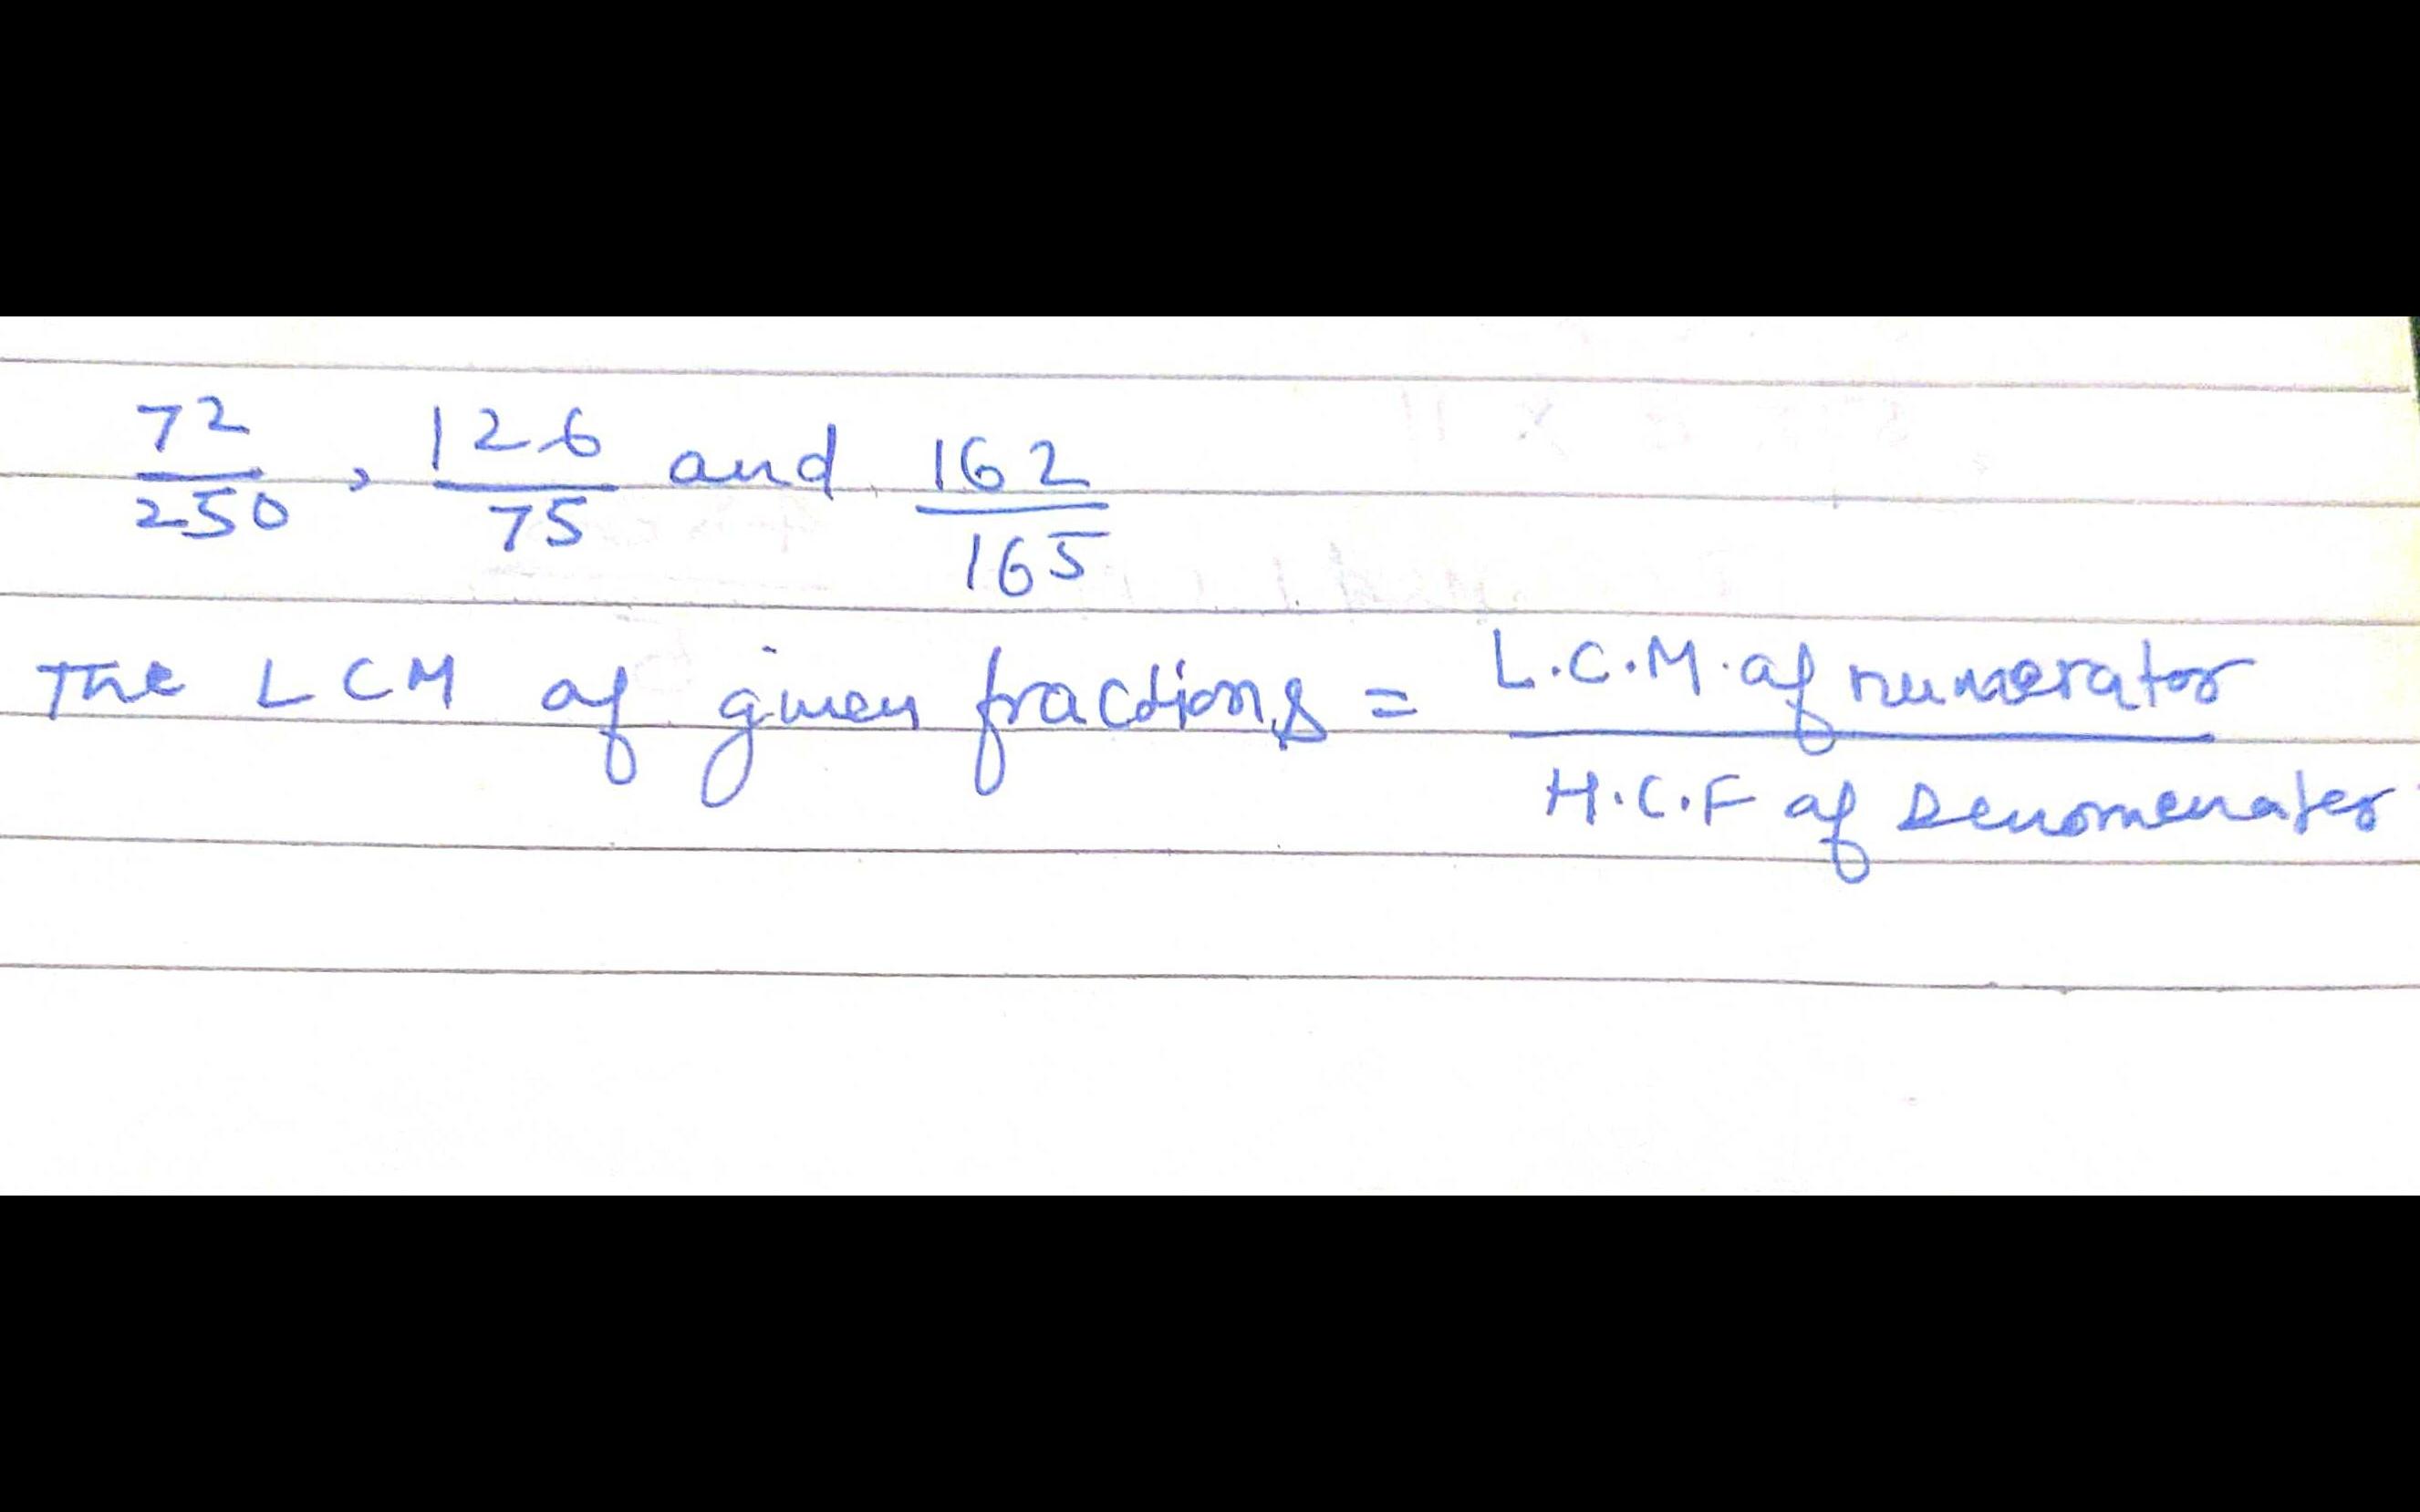 72/250 , 126/75 and 162/165
The LCM of given fractions = L.C.M. of numerator / H.C.F of Denomenater